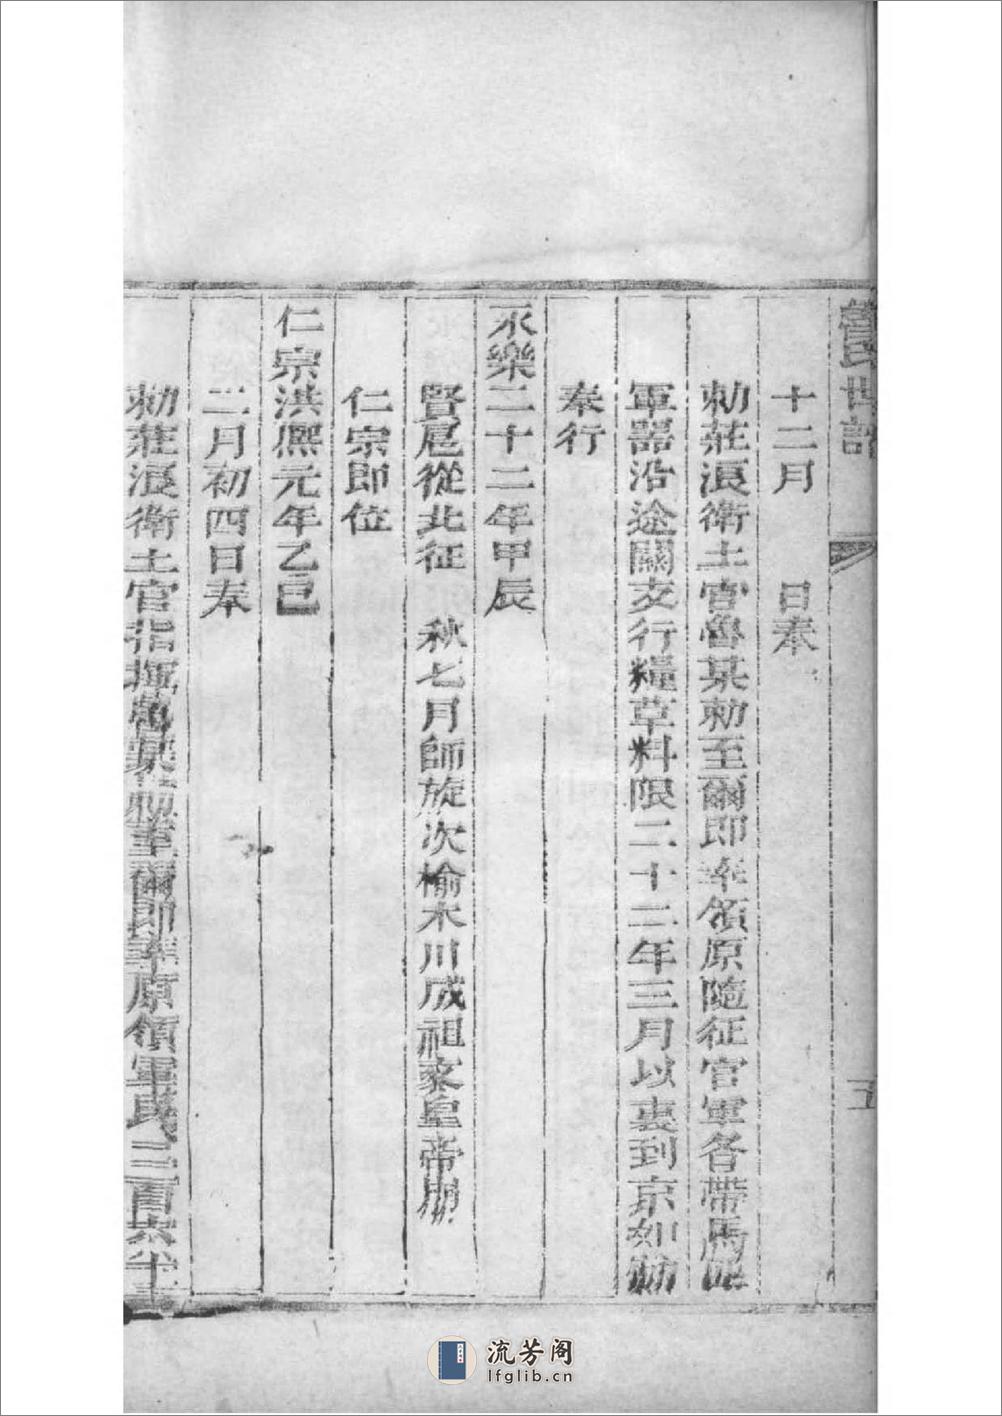 魯氏世譜
五
十二月 日奉
勅莊浪衛土官魯某勅至爾即率領原隨征官軍各帶馬匹
軍器沿途關支行糧草料限二十二年三月以裏到京如勅
奉行
永樂二十二年甲辰
賢扈從北征 秋七月師旋次榆木川成祖文皇帝崩
仁宗即位
仁宗洪熙元年乙巳
二月初四日奉
勅莊浪衛土官指揮魯某勅至爾即率原領軍民三百六
流芳阁
lfglib.cn